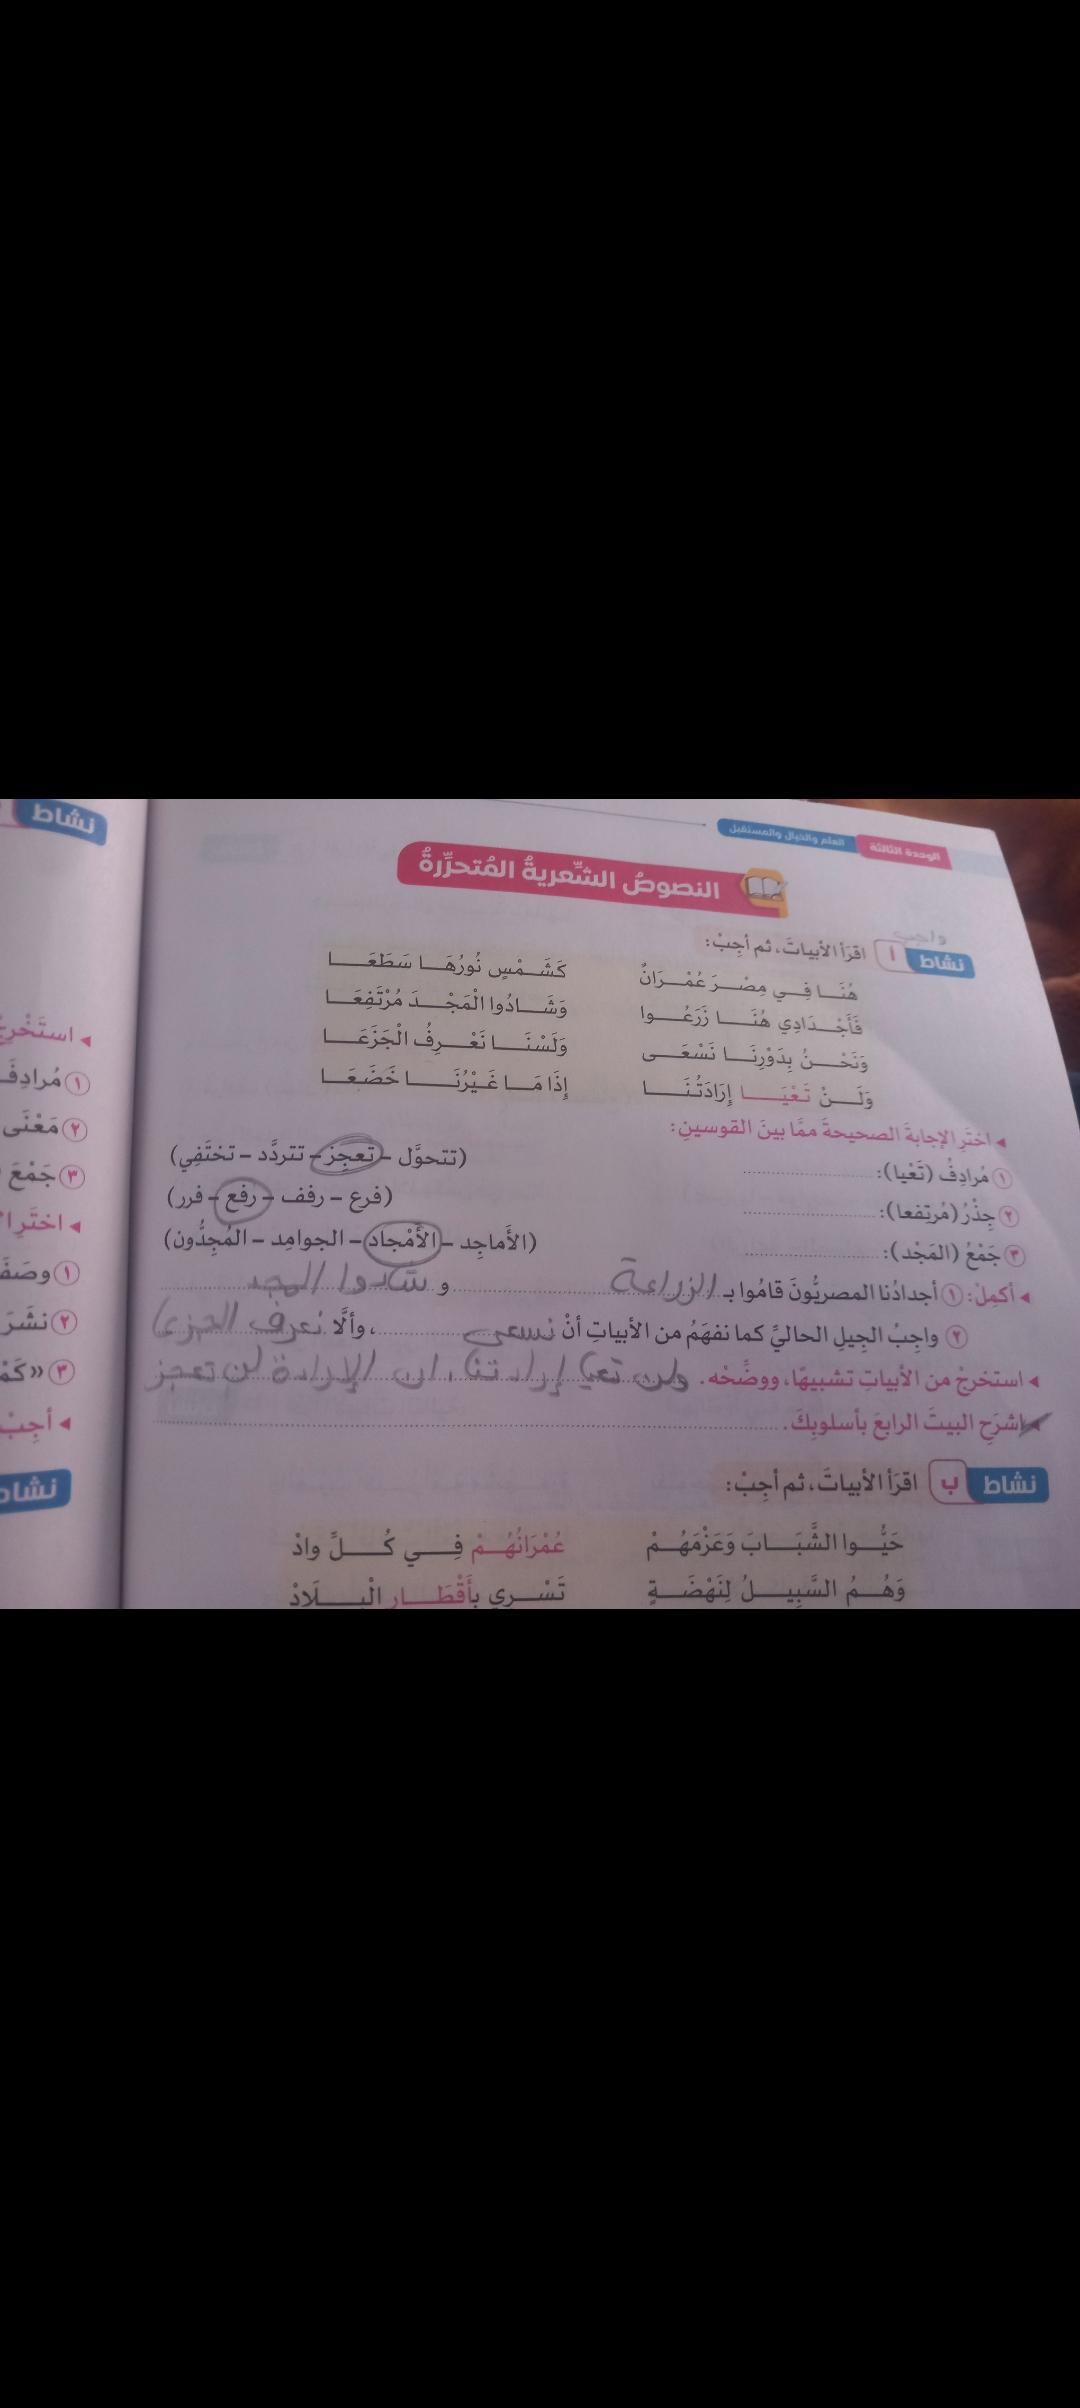 الوحدة الثالثة العلم والخيال والمستقبل
النصوصُ الشِّعريةُ المُتحرِّرةُ
واجب
نشاط أ اقرَأ الأبياتَ، ثم أجِبْ:
هُنَا فِي مِصْرَ عُمْرَانٌ كَشَمْسٍ نُورُهَا سَطَعَا
فَأَجْدَادِي هُنَا زَرَعُوا وَشَادُوا الْمَجْدَ مُرْتَفِعَا
وَنَحْنُ بِدَوْرِنَا نَسْعَى وَلَسْنَا نَعْرِفُ الْجَزَعَا
وَلَنْ تَعْيَا إِرَادَتُنَا إِذَا مَا غَيْرُنَا خَضَعَا
◂ اختَرِ الإجابةَ الصحيحةَ ممَّا بينَ القوسينِ:
١ مُرادِفُ (تَعْيا): (تتحوَّل – تعجِز – تتردَّد – تختَفِي)
٢ جِذْرُ (مُرتفعا): (فرع – رفف – رفع – فرر)
٣ جَمْعُ (المَجْد): (الأَماجِد – الأَمْجاد – الجوامِد – المُجِدُّون)
◂ أكمِلْ: ١ أجدادُنا المصريُّونَ قامُوا بـ الزراعة و شادوا المجد
٢ واجِبُ الجِيلِ الحاليِّ كما نفهَمُ من الأبياتِ أنْ نسعى، وألَّا نعرف الجزعا
◂ استخرِجْ من الأبياتِ تشبيهًا، ووضِّحْه. ولن تعيا إرادتنا، ان الإرادة لن تعجز
◂ اشرَحِ البيتَ الرابعَ بأسلوبِكَ.
نشاط ب اقرَأ الأبياتَ، ثم أجِبْ:
حَيُّوا الشَّبَابَ وَعَزْمَهُمْ عُمْرَانُهُمْ فِي كُلِّ وادْ
وَهُمُ السَّبِيلُ لِنَهْضَةٍ تَسْرِي بِأَقْطَارِ الْبِلَادْ
نشاط
◂ استَخْرِجْ
١ مُرادِفَ
٢ مَعْنَى
٣ جَمْعَ
◂ اختَرِ
١ وصَفَ
٢ نشَرَ
٣ «كَمْ
◂ أجِبْ
نشاط